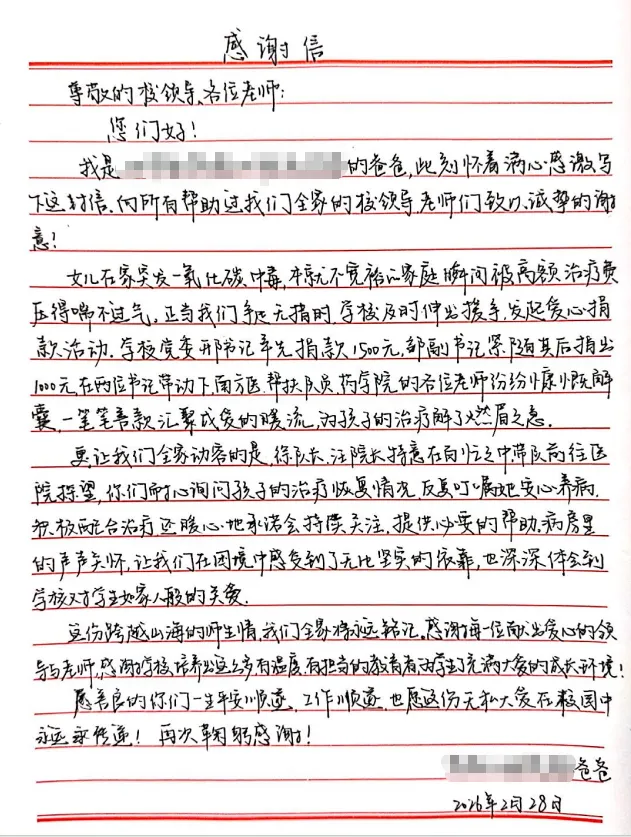 感谢信
尊敬的校领导、各位老师:
您们好!
我是 的爸爸,此刻怀着满心感激写
下这封信,向所有帮助过我们全家的校领导,老师们致以诚挚的谢
意!
女儿在家突发一氧化碳中毒,本就不宽裕的家庭瞬间被高额治疗费
压得喘不过气。正当我们手足无措时,学校及时伸出援手,发起爱心捐
款活动。学校党委邢书记率先捐款1500元,郭副书记紧随其后捐出
1000元,在两位书记带动下,南方医帮扶队员,药学院的各位老师纷纷慷慨解
囊,一笔笔善款汇聚成爱的暖流,为孩子的治疗解了燃眉之急.
更让我们全家动容的是,徐队长、汪院长特意在百忙之中带队前往医
院探望,你们耐心询问孩子的治疗恢复情况,反复叮嘱她安心养病,
积极配合治疗,还暖心地承诺会持续关注,提供必要的帮助,病房里
的声声关怀,让我们在困境中感受到了无比坚实的依靠,也深深体会到
学校对学生如家人般的关爱.
这份跨越山海的师生情,我们全家将永远铭记。感谢每一位献出爱心的领
导与老师,感谢学校培养出这么多有温度、有担当的教育者,为学生了充满大爱的成长环境!
愿善良的你们一生平安顺遂,工作顺遂,也愿这份无私大爱在校园中
永远永传递!再次鞠躬感谢!
爸爸
2026年2月28日